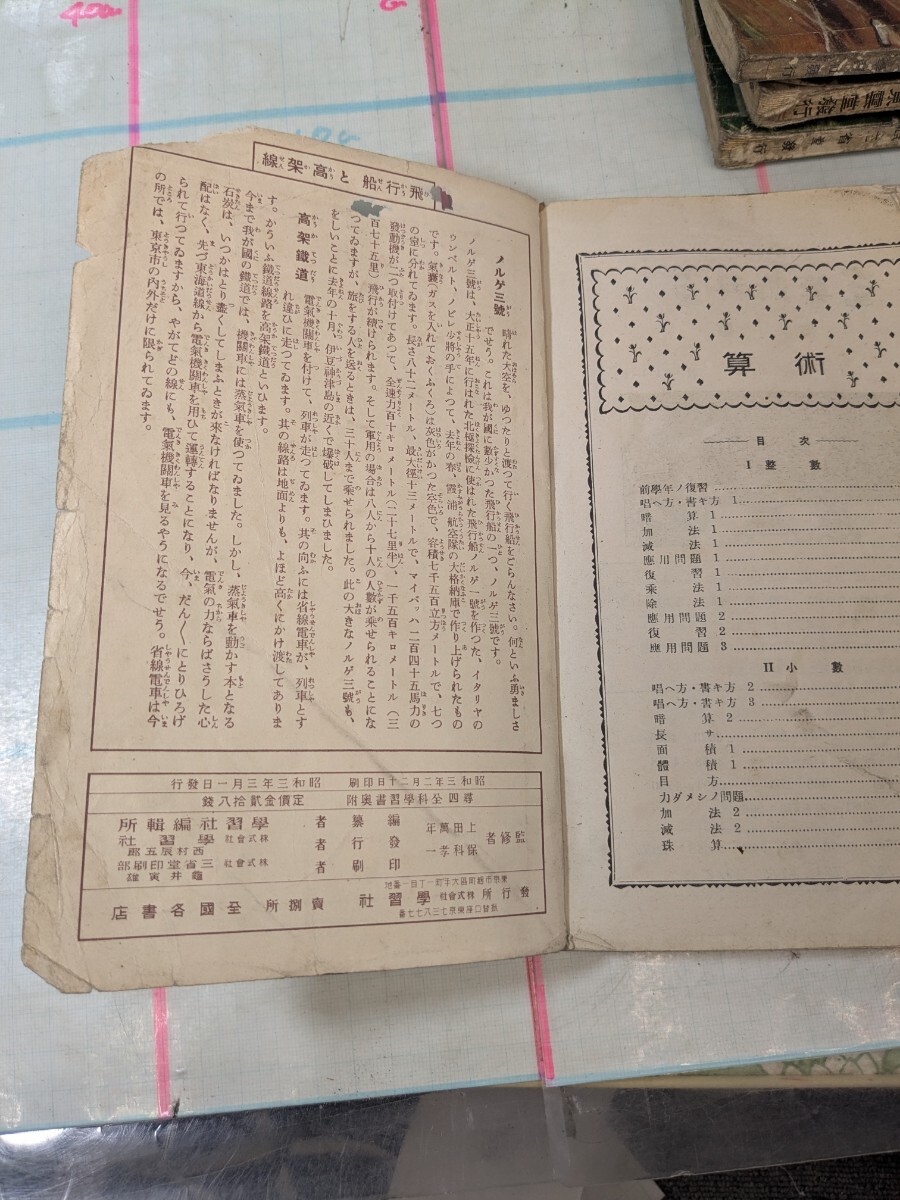 飛行船と高架線
ノルゲ三號
晴れた大空を、ゆつたりと渡つて行く飛行船をごらんなさい。何といふ勇ましさ
でせう。これは我が國に數少かつた飛行船の一つ、ノルゲ三號です。
ノルゲ三號は、大正十五年に行はれた北極探檢に使はれた飛行船ノルゲ一號を作つた、イタリヤの
ウンベルト、ノビレ少將の手によつて、去年の春、霞浦航空隊の大格納庫で作り上げられたもの
です。氣嚢(ガスを入れておくふくろ)は灰色がかつた空色で、容積七千五百立方メートルで、七つ
の室に分れてゐます。長さ八十二メートル、最大徑十三メートルで、マイバッハ二百四十五馬力の
發動機が二つ取付けてあつて、全速力百十キロメートル(二十七里半)、一千五百キロメートル(三
百七十五里)飛行が續けられます。そして軍用の場合は八人から十人の人數が乘せられることにな
つてゐますが、旅をする人を送るときは、三十人まで乘せられました。此の大きなノルゲ三號も、
をしいことに去年の十月、伊豆神津島の近くで爆破してしまひました。
高架鐵道
電氣機關車を付けて、列車が走つてゐます。其の向ふには省線電車が、列車とす
れ違ひに走つてゐます。其の線路は地面よりも、よほど高くにかけ渡してありま
す。かういふ鐵道線路を高架鐵道といひます。
今まで我が國の鐵道では、機關車には蒸氣車を使つてゐました。しかし、蒸氣車を動かす本となる
石炭は、いつかはとり盡くしてしまふときが來なければなりませんが、電氣の力ならばさうした心
配はなく、先づ東海道線から電氣機關車を用ひて運轉することになり、今、だん〱にとりひろげ
られて行つてゐますから、やがてどの線にも、電氣機關車を見るやうになるでせう。省線電車は今
の所では、東京市の内外だけに限られてゐます。
昭和三年二月二十日印刷
昭和三年三月一日發行
尋四全科學習書奧附
定價金貳拾八錢
監修者
上田萬年
保科孝一
編纂者
學習社編輯所
發行者
株式會社 學習社
西村辰五郎
印刷者
株式會社 三省堂印刷部
龜井寅雄
發行所
東京市麹町區大手町一丁目一番地
株式會社 學習社
振替口座東京七三八七七番
賣捌所 全國各書店
算術
目次
I 整數
前學年ノ復習
唱ヘ方・書キ方 1
暗算 1
加法 1
減法 1
應用問題 1
復習 1
乘法 1
除法 1
應用問題 2
復習 2
應用問題 3
II 小數
唱ヘ方・書キ方 2
唱ヘ方・書キ方 3
暗算 2
長サ
面積 1
體積 1
目方
力ダメシノ問題
加法 2
減法 2
珠算